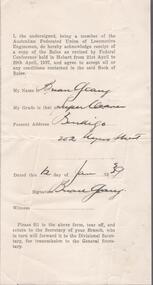 I, the undersigned, being a member of the
Australian Federated Union of Locomotive
Enginemen, do hereby acknowledge receipt of
a copy of the Rules as revised by Federal
Conference held in Hobart from 21st April to
29th April, 1937, and agree to accept all or
any conditions contained in the said Book of
Rules.
My Name is
My Grade is that
Present Address Bendigo
Dated this 12 day of Jan
Signature
Witness
Please fill in the above form, tear off, and
return to the Secretary of your Branch, who
in turn will forward it to the Divisional Secre-
tary, for transmission to the General Secre-
tary.